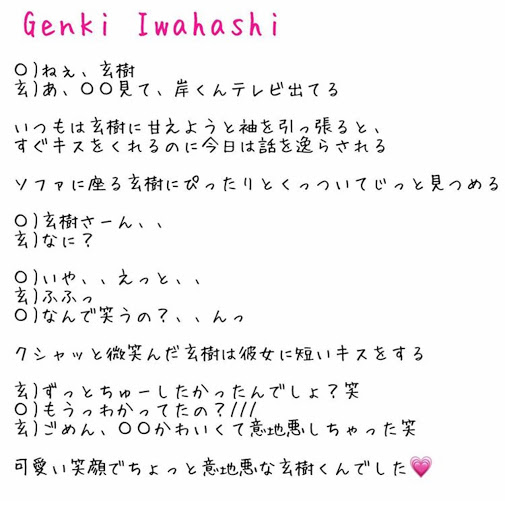 Genki Iwahashi
〇)ねぇ、玄樹
玄)あ、〇〇見て、岸くんテレビ出てる
いつもは玄樹に甘えようと袖を引っ張ると、
すぐキスをくれるのに今日は話を逸らされる
ソファに座る玄樹にぴったりとくっついてじっと見つめる
〇)玄樹さーん、、
玄)なに？
〇)いや、、えっと、、
玄)ふふっ
〇)なんで笑うの？、、んっ
クシャッと微笑んだ玄樹は彼女に短いキスをする
玄)ずっとちゅーしたかったんでしょ？笑
〇)もうっわかってたの？///
玄)ごめん、〇〇かわいくて意地悪しちゃった笑
可愛い笑顔でちょっと意地悪な玄樹くんでした💗